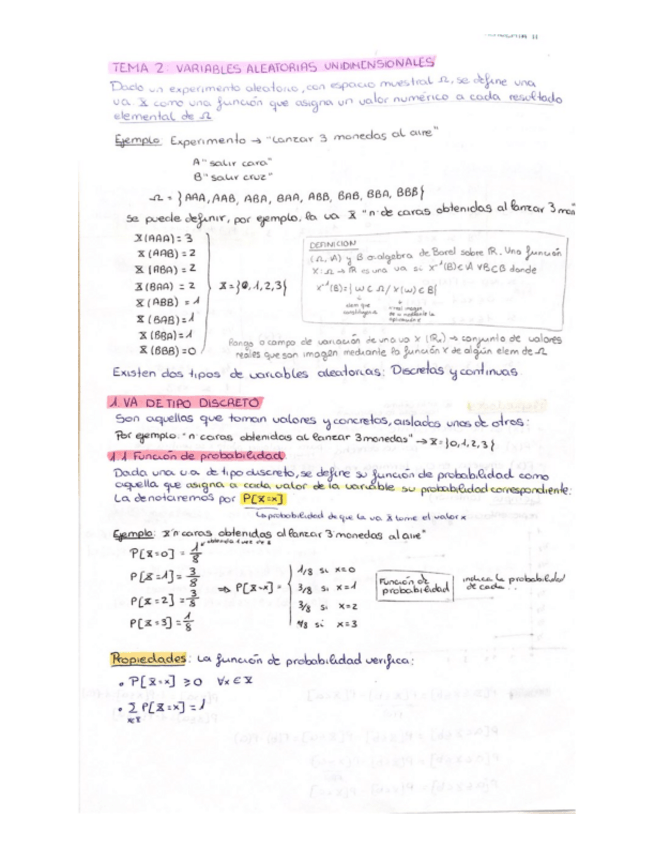 TEMA 2: VARIABLES ALEATORIAS UNIDIMENSIONALES
Dado un experimento aleatorio, con espacio muestral Ω, se define una
va. X como una función que asigna un valor numérico a cada resultado
elemental de Ω
Ejemplo: Experimento → "Lanzar 3 monedas al aire"
A "salir cara"
B "salir cruz"
Ω = {AAA, AAB, ABA, BAA, ABB, BAB, BBA, BBB}
Se puede definir, por ejemplo, la va X "nº de caras obtenidas al lanzar 3 mon
X(AAA) = 3
X(AAB) = 2
X(ABA) = 2
X(BAA) = 2
X(ABB) = 1
X(BAB) = 1
X(BBA) = 1
X(BBB) = 0
X = {0, 1, 2, 3}
DEFINICION
(Ω, A) y B σ-algebra de Borel sobre R. Una función
X: Ω → R es una va si X⁻¹(B) ∈ A ∀B ∈ B donde
X⁻¹(B) = {ω ∈ Ω / X(ω) ∈ B}
elem que
Rango o campo de variación de una va X (Rx) → conjunto de valores
reales que son imagen mediante la función X de algún elem de Ω
Existen dos tipos de variables aleatorias: Discretas y continuas.
1. VA DE TIPO DISCRETO
Son aquellas que toman valores y concretos, aislados unos de otros:
Por ejemplo: "nº caras obtenidas al lanzar 3 monedas" → X = {0, 1, 2, 3}
1.1 Función de probabilidad
Dada una va de tipo discreto, se define su función de probabilidad como
aquella que asigna a cada valor de la variable su probabilidad correspondiente.
La denotaremos por P[X=x]
La probabilidad de que la va X tome el valor x
Ejemplo: X "nº caras obtenidas al lanzar 3 monedas al aire"
P[X=0] = 1/8
P[X=1] = 3/8
P[X=2] = 3/8
P[X=3] = 1/8
⇒ P[X=x] =
1/8 si x=0
3/8 si x=1
3/8 si x=2
1/8 si x=3
Función de
probabilidad
indica la probabilidad
de cada...
Propiedades: La función de probabilidad verifica:
• P[X=x] ≥ 0 ∀x ∈ X
• Σ P[X=x] = 1
x∈X